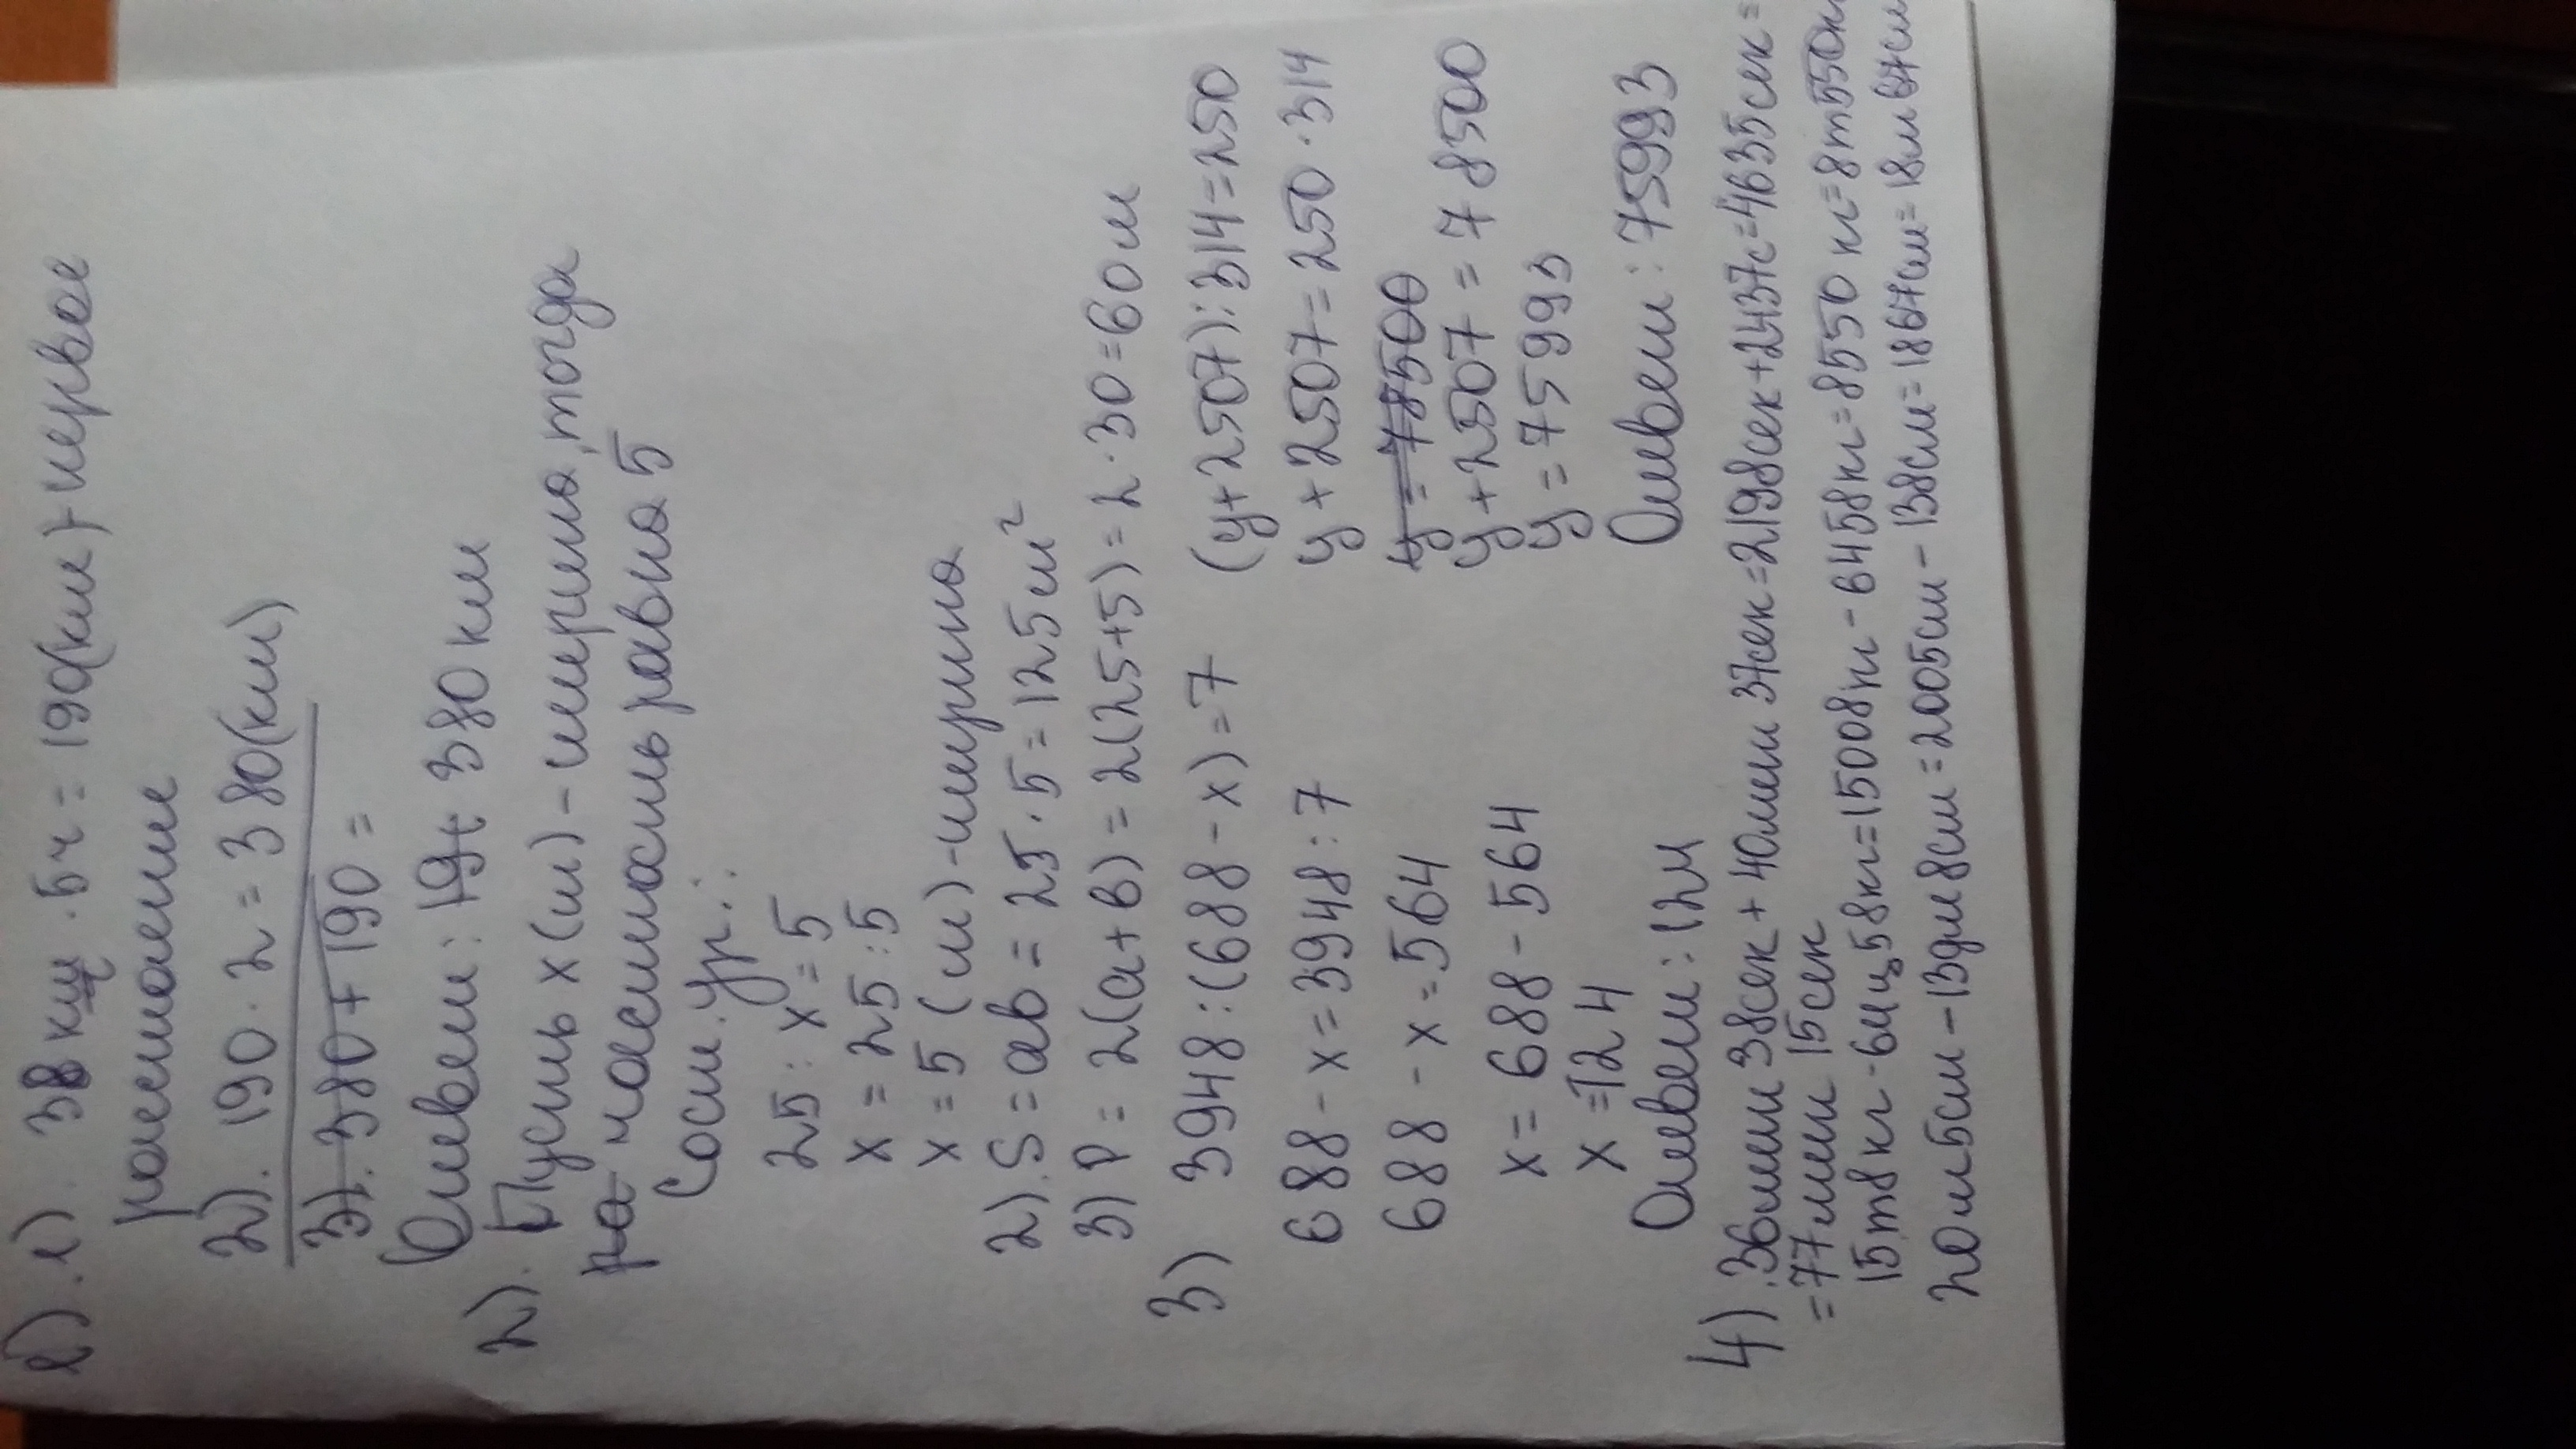 1). 1) 38 км · 5ч = 190(км) - первое
расстояние
2). 190 · 2 = 380(км)
3). 380 + 190 =
Ответ: 19t 380 км
2). Пусть x (м) - ширина, тогда
ра частность равна 5
Сост. ур.:
25 : x = 5
x = 25 : 5
x = 5 (м) - ширина
2). S = ab = 25 · 5 = 125 м²
3) P = 2(a+b) = 2(25+5) = 2 · 30 = 60 м
3) 3948 : (688 - x) = 7 (y + 2507) : 314 = 250
688 - x = 3948 : 7 y + 2507 = 250 · 314
688 - x = 564 y = 78500
y + 2507 = 78500
x = 688 - 564 y = 75993
x = 124
Ответ: 124 Ответ: 75993
4). 36мин 38сек + 40мин 37сек = 2198сек + 2437с = 4635сек =
= 77мин 15сек
15т8кг - 64ц58кг = 15008кг - 6458кг = 8550 кг = 8т550к
20м5см - 13дм8см = 2005см - 138см = 1867см = 18м67см